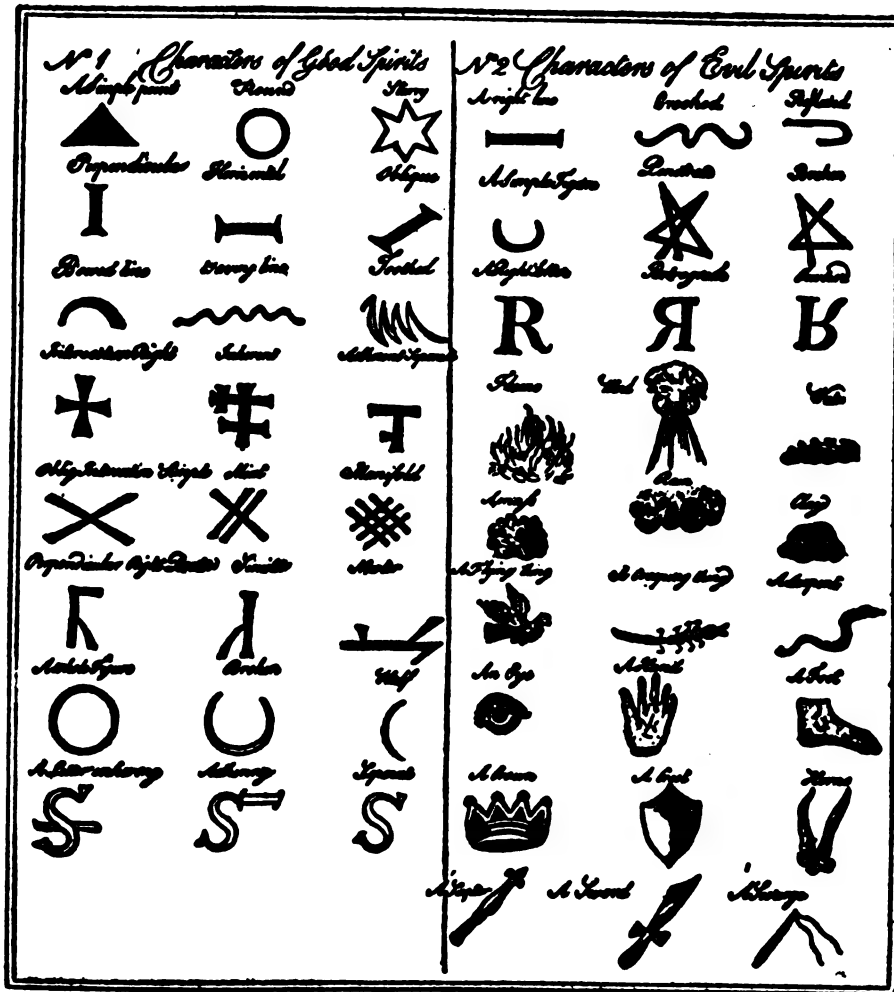 Nº 1 Characters of Good Spirits
A Simple point Round Starry
Perpendicular Horizontal Oblique
Bowed line Waving line Toothed
Intersection Right Inherent Adherent Separate
Obliq Intersection Simple Mixt Manifold
Perpendicular Right Dexter Sinister Neuter
A whole Figure Broken Half
A Letter inhering Adhering Separate
S S S
Nº 2 Characters of Evil Spirits
A right line Crooked Reflexed
A Simple Figure Penetrate Broken
A Right Letter Retrograde
R R R
Flame Wind Water
A mass Rain Clay
A Flying thing A Creeping thing A Serpent
An Eye A Hand A Foot
A Crown A Crest Horns
A Scepter A Sword A Scourge